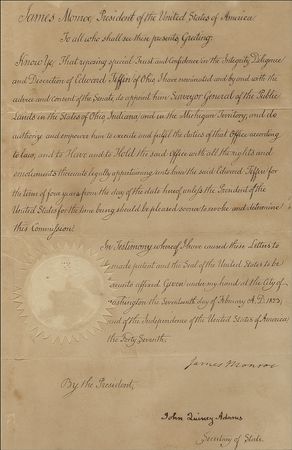 James Monroe, President of the United States of America
To all who shall see these presents, Greeting:
Know Ye, That reposing special Trust and Confidence in the Integrity, Diligence
and Discretion of Edward Tiffin of Ohio, I have nominated and by and with the
advice and consent of the Senate do appoint him Surveyor General of the Public
Lands in the States of Ohio, Indiana, and in the Michigan Territory; and do
authorize and empower him to execute and fulfil the duties of that Office according
to law; and to Have and to Hold the said office with all the rights and
emoluments thereunto legally appertaining unto him the said Edward Tiffin for
the term of four years from the day of the date hereof unless the President of the
United States for the time being should be pleased sooner to revoke and determine
this Commission.
In Testimony whereof I have caused these Letters to
be made patent and the Seal of the United States to be
hereunto affixed. Given under my hand at the City of
Washington the Seventeenth day of February A.D. 1823;
and of the Independence of the United States of America
the Forty Seventh.
James Monroe
By the President,
John Quincy Adams
Secretary of State.